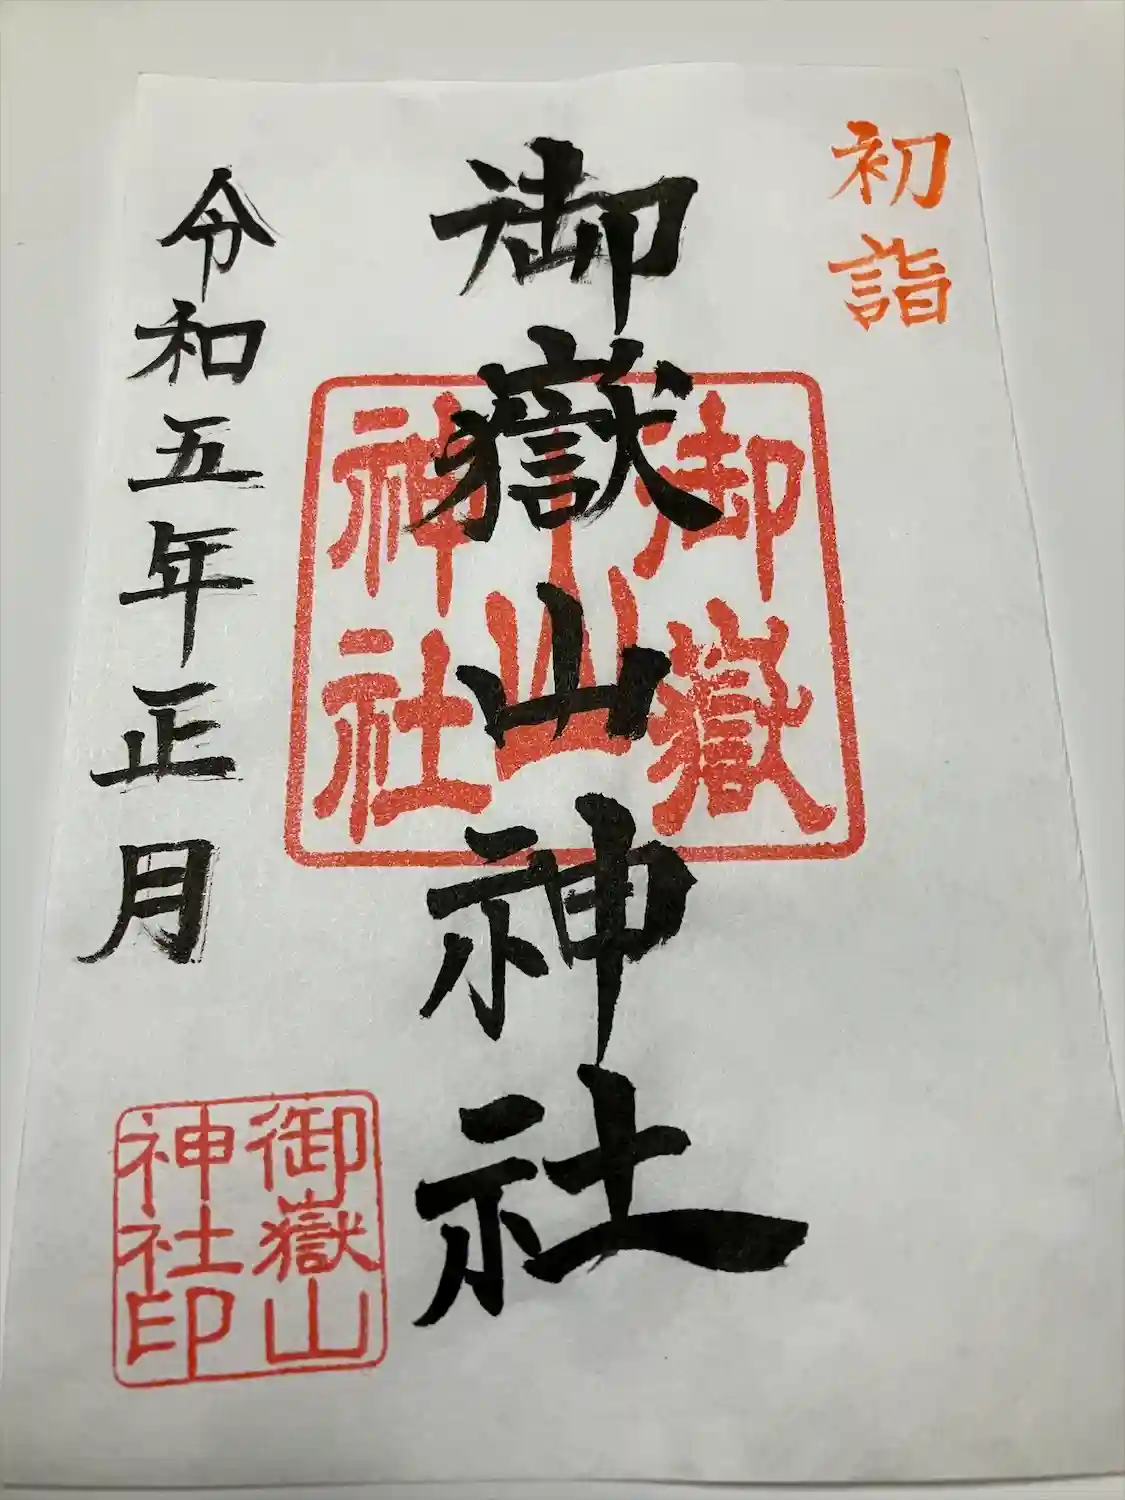 初詣
御嶽山神社
令和五年正月
御嶽
山
神社
御嶽山
神社印